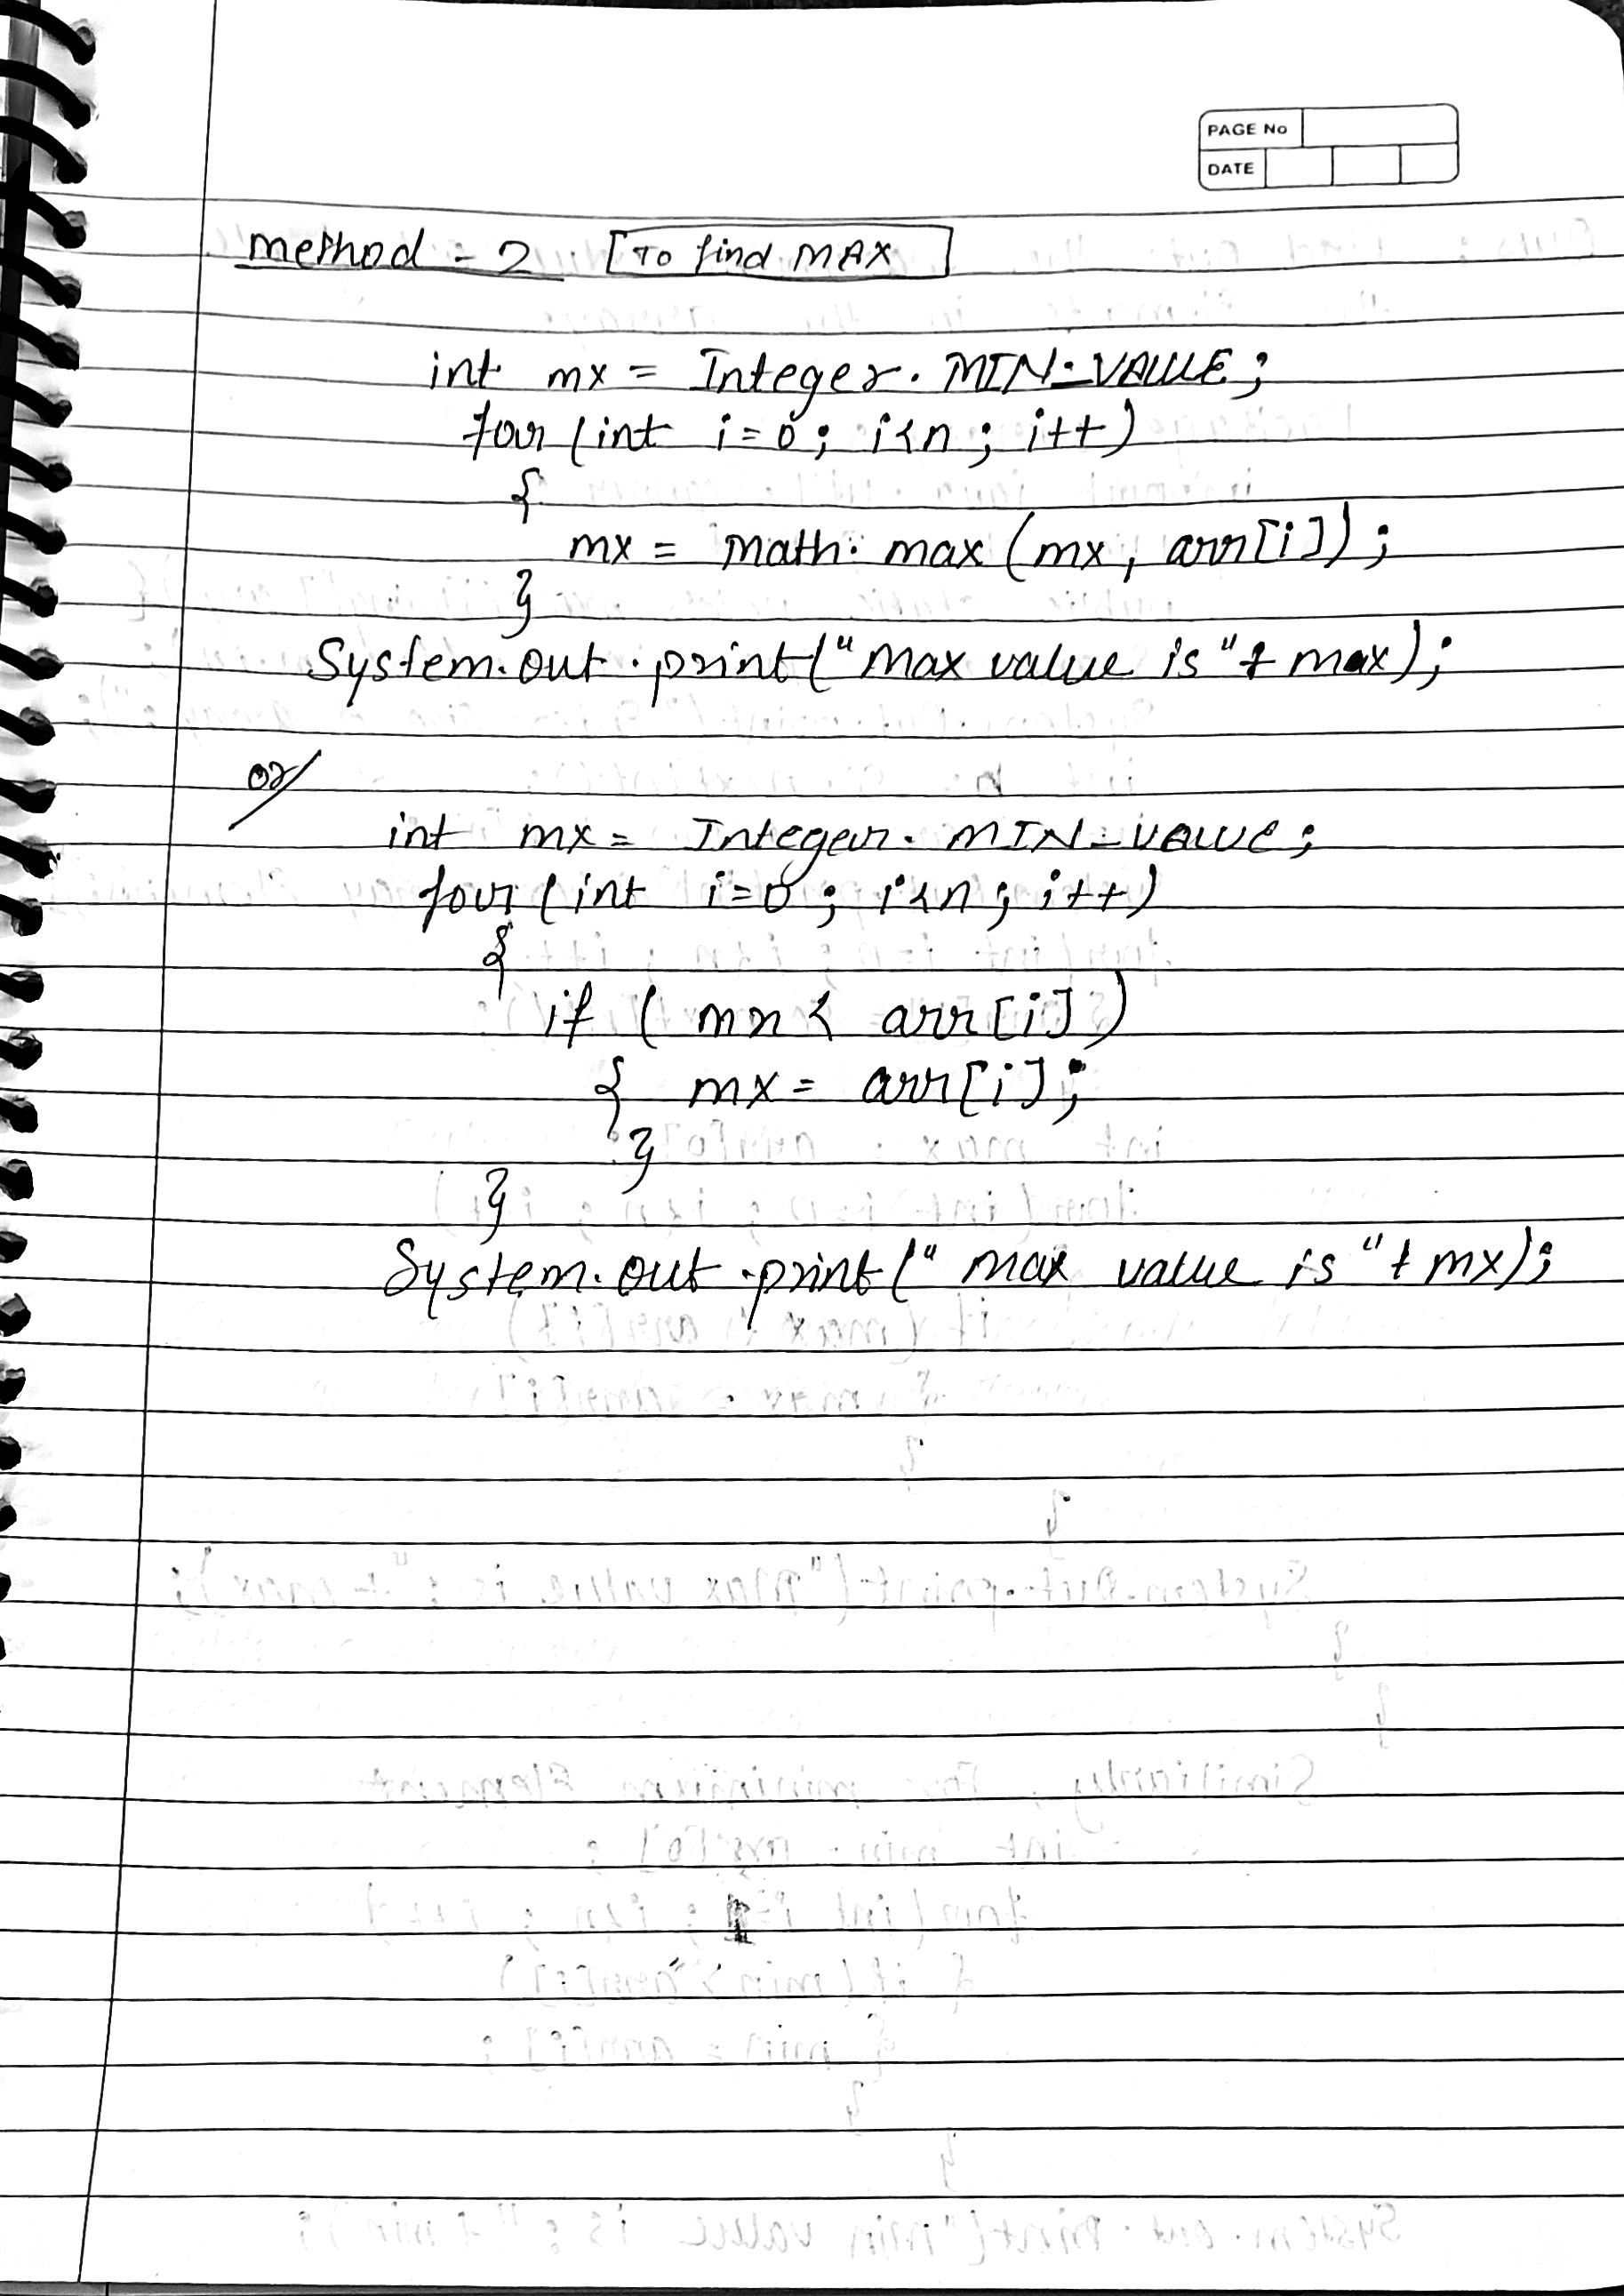 PAGE No
DATE
method = 2 [To find MAX]
int mx = Integer. MIN_VALUE;
for (int i=0; i<n; i++)
{
mx = math. max (mx, arr[i]);
}
System.out.print("Max value is"+ max);
or
int mx = Integer. MIN_VALUE;
for (int i=0; i<n; i++)
{
if ( mx < arr[i])
{ mx = arr[i];
}
}
System.out.print(" max value is "+ mx);